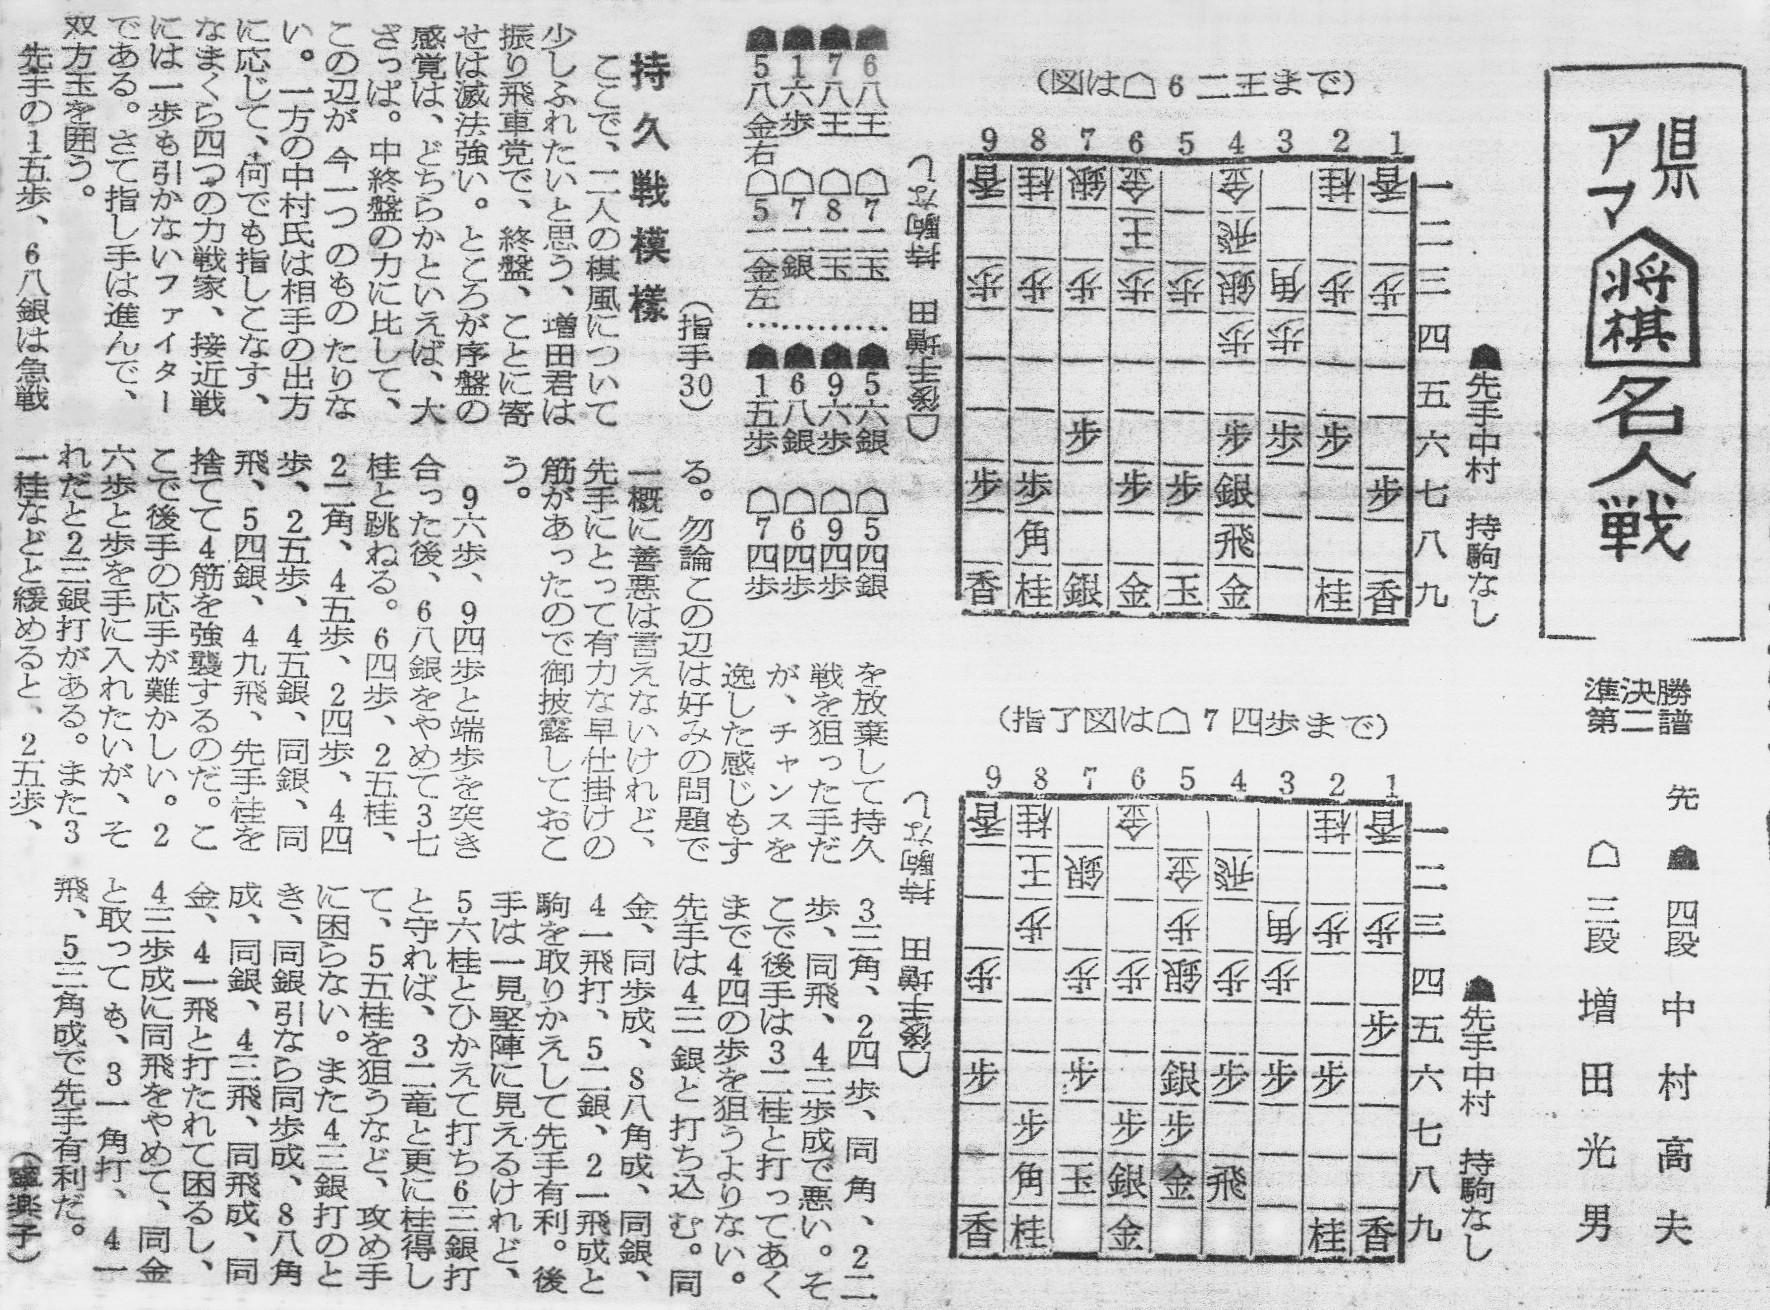 県
アマ将棋名人戦
準決勝
第二譜
先 ☗ 四段 中村高夫
☖ 三段 増田光男
(図は☖6二王まで)
9 8 7 6 5 4 3 2 1
香桂銀金 金 桂香 一
王 飛 二
歩歩歩歩歩銀角歩歩 三
歩歩 四
五
歩 歩歩歩 六
歩歩 歩歩銀 歩 七
角 飛 八
香桂銀金玉金 桂香 九
☗先手中村 持駒なし
☖後手増田 持駒なし
(指了図は☖7四歩まで)
9 8 7 6 5 4 3 2 1
香桂 金 桂香 一
王銀 金飛 二
歩 歩 角歩歩 三
歩 歩歩銀歩歩 四
歩 五
歩 歩 銀歩歩歩 六
歩 歩歩 七
角玉銀金飛 八
香桂 金 桂香 九
☗先手中村 持駒なし
☖後手増田 持駒なし
☗6八王 ☖7二玉
☗7八王 ☖8二玉
☗1六歩 ☖7二銀
☗5八金右 ☖5二金左
☗5六銀 ☖5四銀
☗9六歩 ☖9四歩
☗6八銀 ☖6四歩
☗1五歩 ☖7四歩
(指手30)
持久戦模様
ここで、二人の棋風について
少しふれたいと思う、増田君は
振り飛車党で、終盤、ことに寄
せは滅法強い。ところが序盤の
感覚は、どちらかといえば、大
ざっぱ。中終盤の力に比して、
この辺が今一つのものたりな
い。一方の中村氏は相手の出方
に応じて、何でも指しこなす、
なまくら四つの力戦家、接近戦
には一歩も引かないファイター
である。さて指し手は進んで、
双方玉を囲う。
先手の1五歩、6八銀は急戦
を放棄して持久
戦を狙った手だ
が、チャンスを
逸した感じもす
る。勿論この辺は好みの問題で
一概に善悪は言えないけれど、
先手にとって有力な早仕掛けの
筋があったので御披露しておこ
う。
9六歩、9四歩と端歩を突き
合った後、6八銀をやめて3七
桂と跳ねる。6四歩、2五桂、
2二角、4五歩、2四歩、4四
歩、2五歩、4五銀、同銀、同
飛、5四銀、4九飛、先手桂を
捨てて4筋を強襲するのだ。こ
こで後手の応手が難かしい。2
六歩と歩を手に入れたいが、そ
れだと2三銀打がある。また3
一桂などと緩めると、2五歩、
3三角、2四歩、同角、2二
歩、同飛、4三歩成で悪い。そ
こで後手は3二桂と打ってあく
まで4四の歩を狙うよりない。
先手は4三銀と打ち込む。同
金、同歩成、8八角成、同銀、
4一飛打、5二銀、2一飛成と
駒を取りかえして先手有利。後
手は一見堅陣に見えるけれど、
5六桂とひかえて打ち6三銀打
と守れば、3二竜と更に桂得し
て、5五桂を狙うなど、攻め手
に困らない。また4三銀打のと
き、同銀引なら同歩成、8八角
成、同銀、4三飛、同飛成、同
金、4一飛と打たれて困るし、
4三歩成に同飛をやめて、同金
と取っても、3一角打、4一
飛、5三角成で先手有利だ。